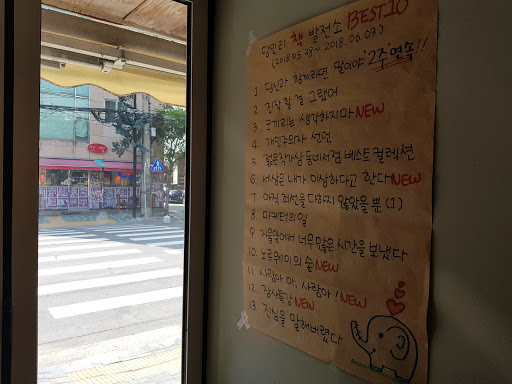 당인리 책 발전소 BEST10
(2018.05.28~2018.06.03)
2주 연속!!
1 당신과 함께라면 말이야
2. 진작 할 걸 그랬어
3. 코끼리는 생각하지마 NEW
4 개인주의자 선언
5 젊은작가상 동네서점 베스트 컬렉션
6 세상은 내가 이상하다고 한다 NEW
7 아직 최선을 다하지 않았을 뿐 (1)
8. 마케터의 일
9 거울앞에서 너무 많은 시간을 보냈다
10. 노르웨이의 숲 NEW
11. 사랑아 아, 사랑아! NEW
12. 감사특강 NEW
13. 진심을 말해버렸다